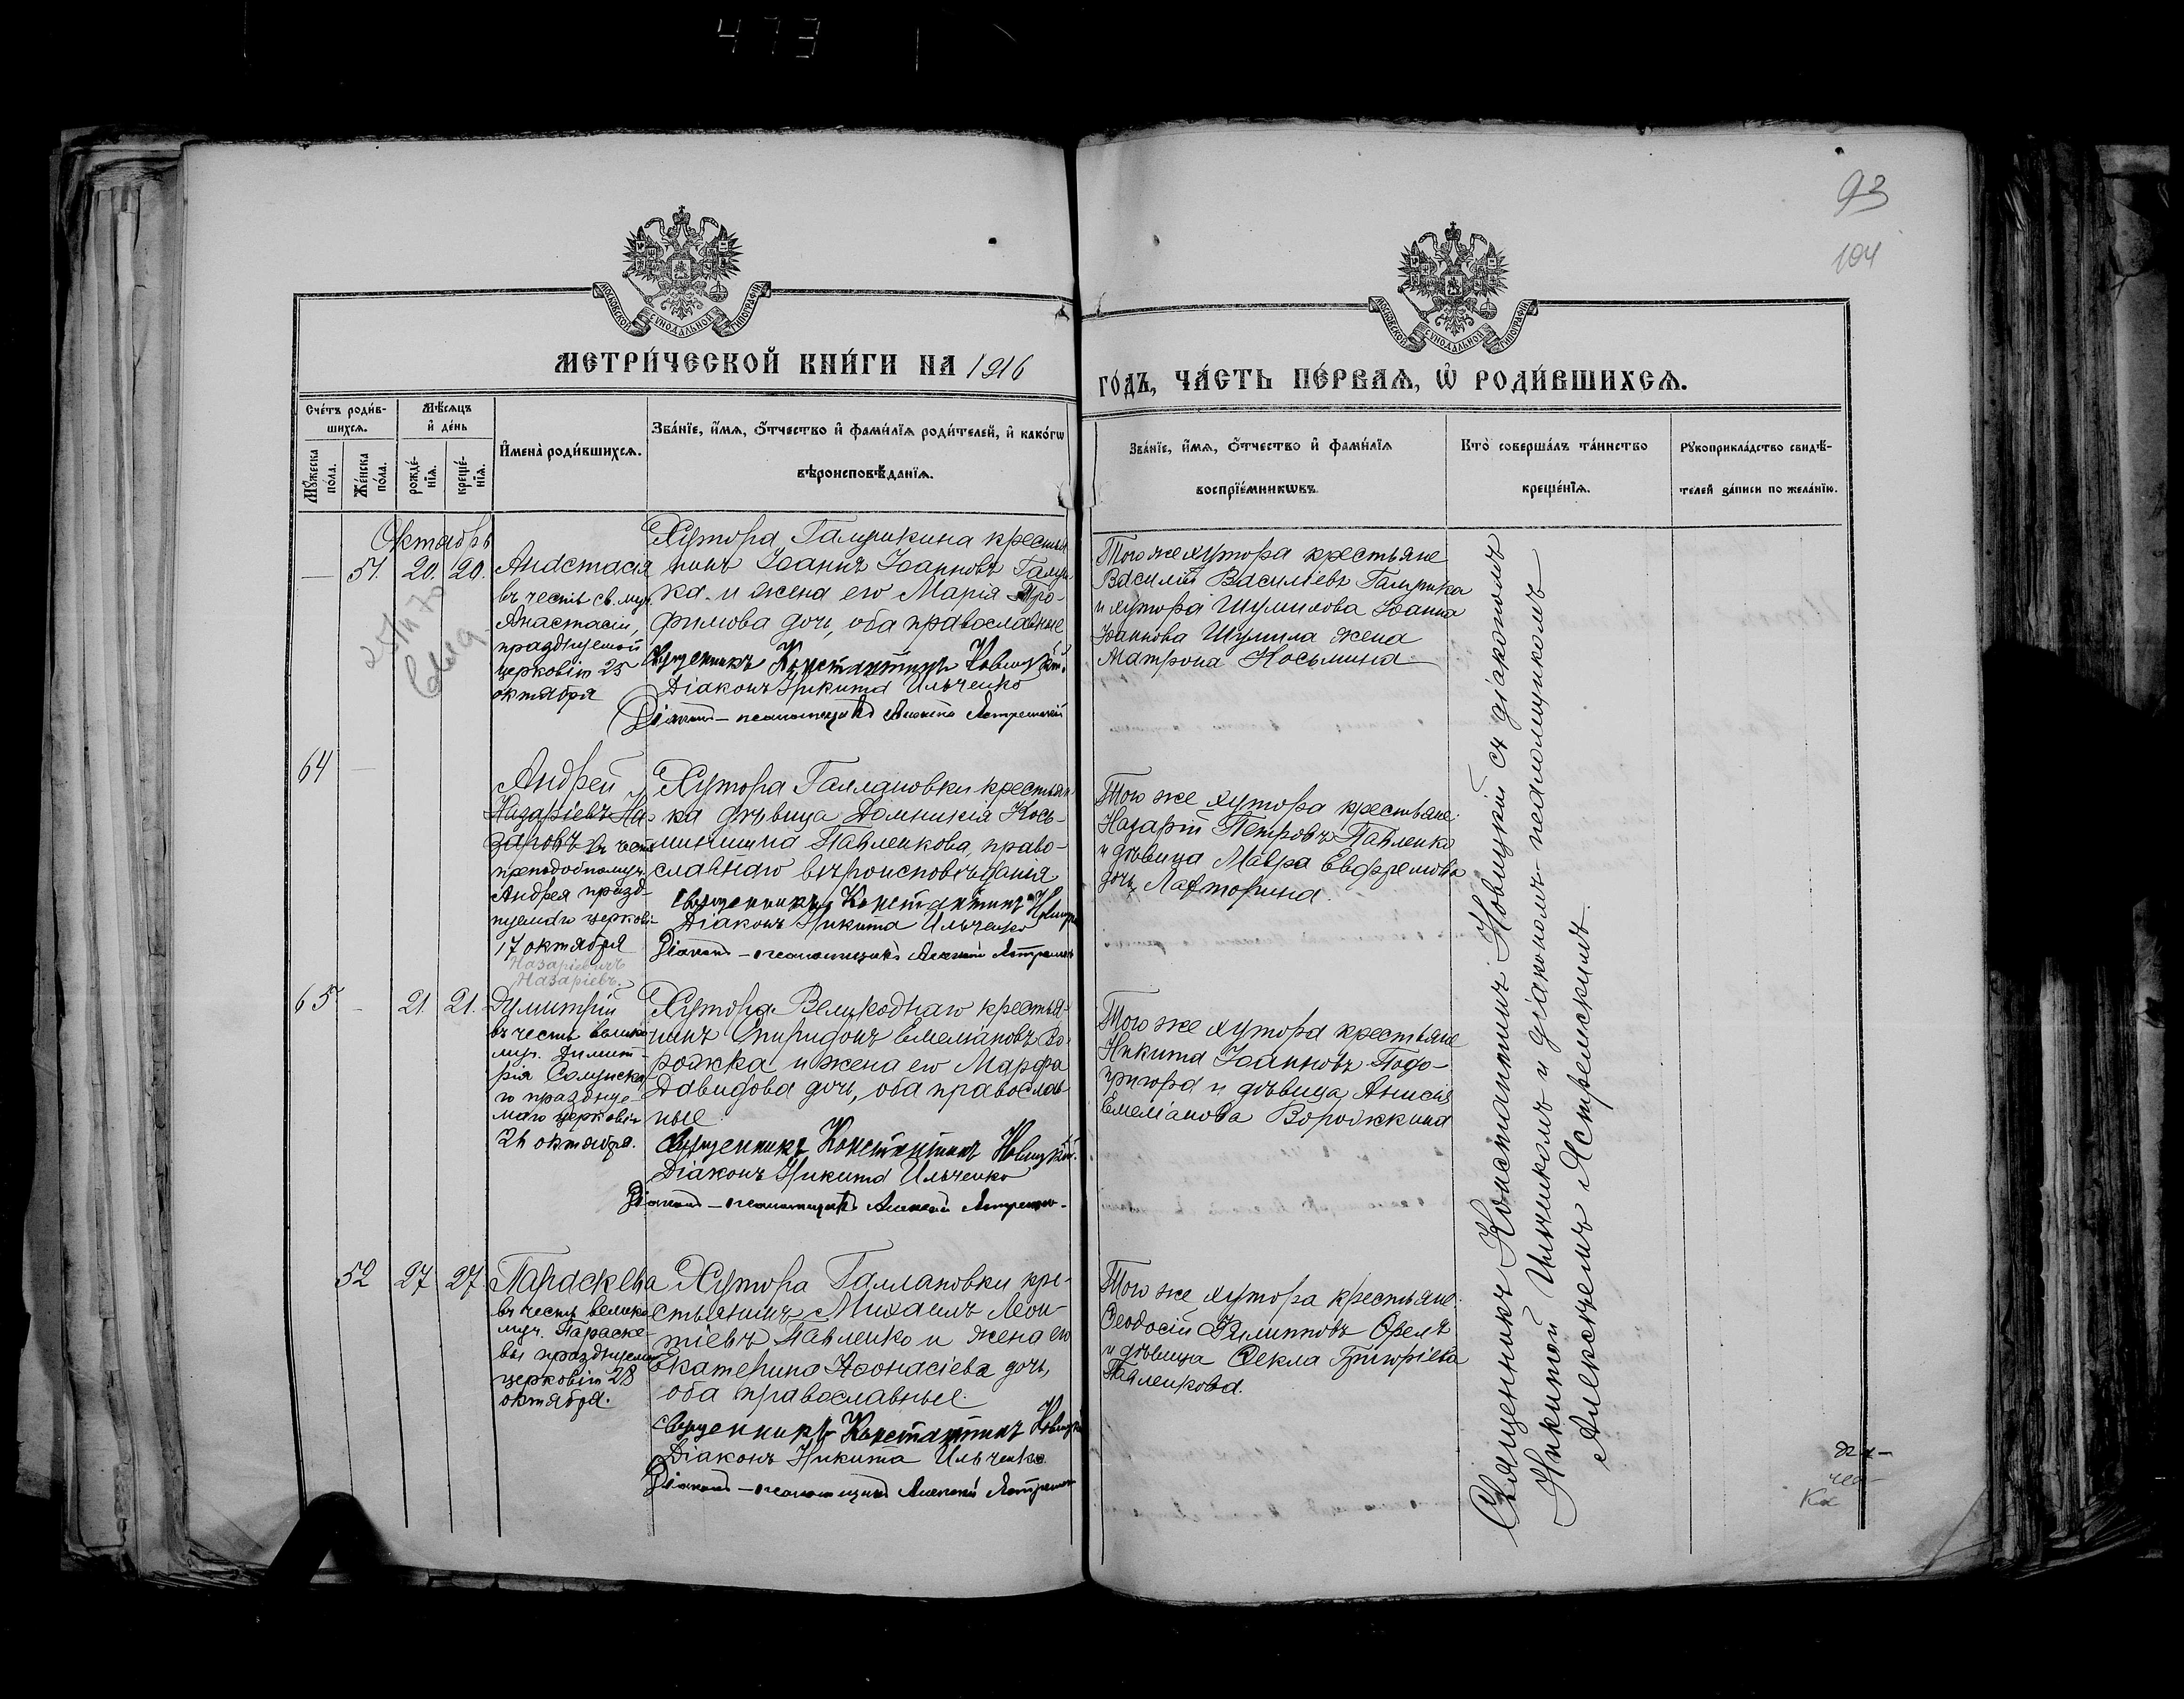 473
93
104
МОСКОВСКОЙ СѴНОДАЛЬНОЙ ТИПОГРАФІИ
МОСКОВСКОЙ СѴНОДАЛЬНОЙ ТИПОГРАФІИ
МЕТРИ́ЧЕСКОЙ КНИ́ГИ НА 1916
ГО́ДЪ, ЧА́СТЬ ПЕ́РВАѦ, Ѡ҆ РОДИ́ВШИХСѦ.
Сче́тъ роди́в-
шихсѧ.
Мꙋ́жеска по́ла.
Же́нска по́ла.
Мѣ́сѧцъ и҆ де́нь
рожде́-
нїѧ.
креще́-
нїѧ.
И҆мена̀ роди́вшихсѧ.
Зва́нїе, и҆́мѧ, ѻ҆́тчество и҆ фами́лїѧ роди́телей, и҆ како́гѡ
вѣроисповѣ́данїѧ.
Зва́нїе, и҆́мѧ, ѻ҆́тчество и҆ фами́лїѧ
воспрїе́мникѡвъ.
Кто̀ соверша́лъ та́инство
креще́нїѧ.
Рꙋкоприкла́дство свидѣ́-
телей за́писи по жела́нїю.
Октябрь
— 51. 20. 20.
Анастасія
въ честь св. муч.
Анастасіи,
празднуемой
церковію 25
октября
Хутора Галушкина крестья
нинъ Іоаннъ Іоанновъ Галуш
ка и жена его Марія Тро-
фимова дочь, оба православные
Священникъ Константинъ Новицкій.
Діаконъ Никита Ильченко
Діаконъ – псаломщикъ Алексій Ястремскій
Того же хутора крестьяне
Василій Василіевъ Галушка
и хутора Шумилова Іоанна
Іоаннова Шумила жена
Матрона Косьмина
64 —
Андрей
Назаріевъ На-
заровъ въ честь
преподобномуч.
Андрея празд-
нуемаго церкові-
17 октября
Назаріевичъ
Назаріевъ.
Хутора Галлановки крестьян
ка дѣвица Домникія Кось-
минишна Павленкова, право-
славнаго вѣроисповѣданія
Священникъ Константинъ Новицкій
Діаконъ Никита Ильченко
Діаконъ – псаломщикъ Алексій Ястремск
Того же хутора крестьяне:
Назарій Петровъ Павленко
и дѣвица Мавра Евфремова
дочь Лафторина.
65 — 21. 21.
Димитрій
въ честь велико
муч. Димит-
рія Солунска-
го празднуе-
маго церковію
26 октября.
Хутора Великоднаго крестья-
нинъ Спиридонъ Емеліановъ Во-
рожка и жена его Марфа
Давидова дочь, оба православ-
ные
Священникъ Константинъ Новицкій.
Діаконъ Никита Ильченко
Діаконъ – псаломщикъ Алексій Ястремск-
Того же хутора крестьяне
Никита Іоанновъ Подо-
пригора и дѣвица Анисія
Емеліанова Ворожкина
52 27 27.
Параскева
въ честь велико
муч. Параске-
вы празднуемой
церковію 28
октября.
Хутора Галлановки кре-
стьянинъ Михаилъ Леон-
тіевъ Павленко и жена его
Екатерина Аѳонасіева дочь,
оба православные.
Священникъ Константинъ Новицкій
Діаконъ Никита Ильченко
Діаконъ – псаломщикъ Алексій Ястремск
Того же хутора крестьяне:
Ѳеодосій Филипповъ Орелъ
и дѣвица Ѳекла Григоріева
Павленкова.
Священникъ Константинъ Новицкій съ діакономъ
Никитой Ильченкомъ и діакономъ-псаломщикомъ
Алексѣемъ Ястремскимъ